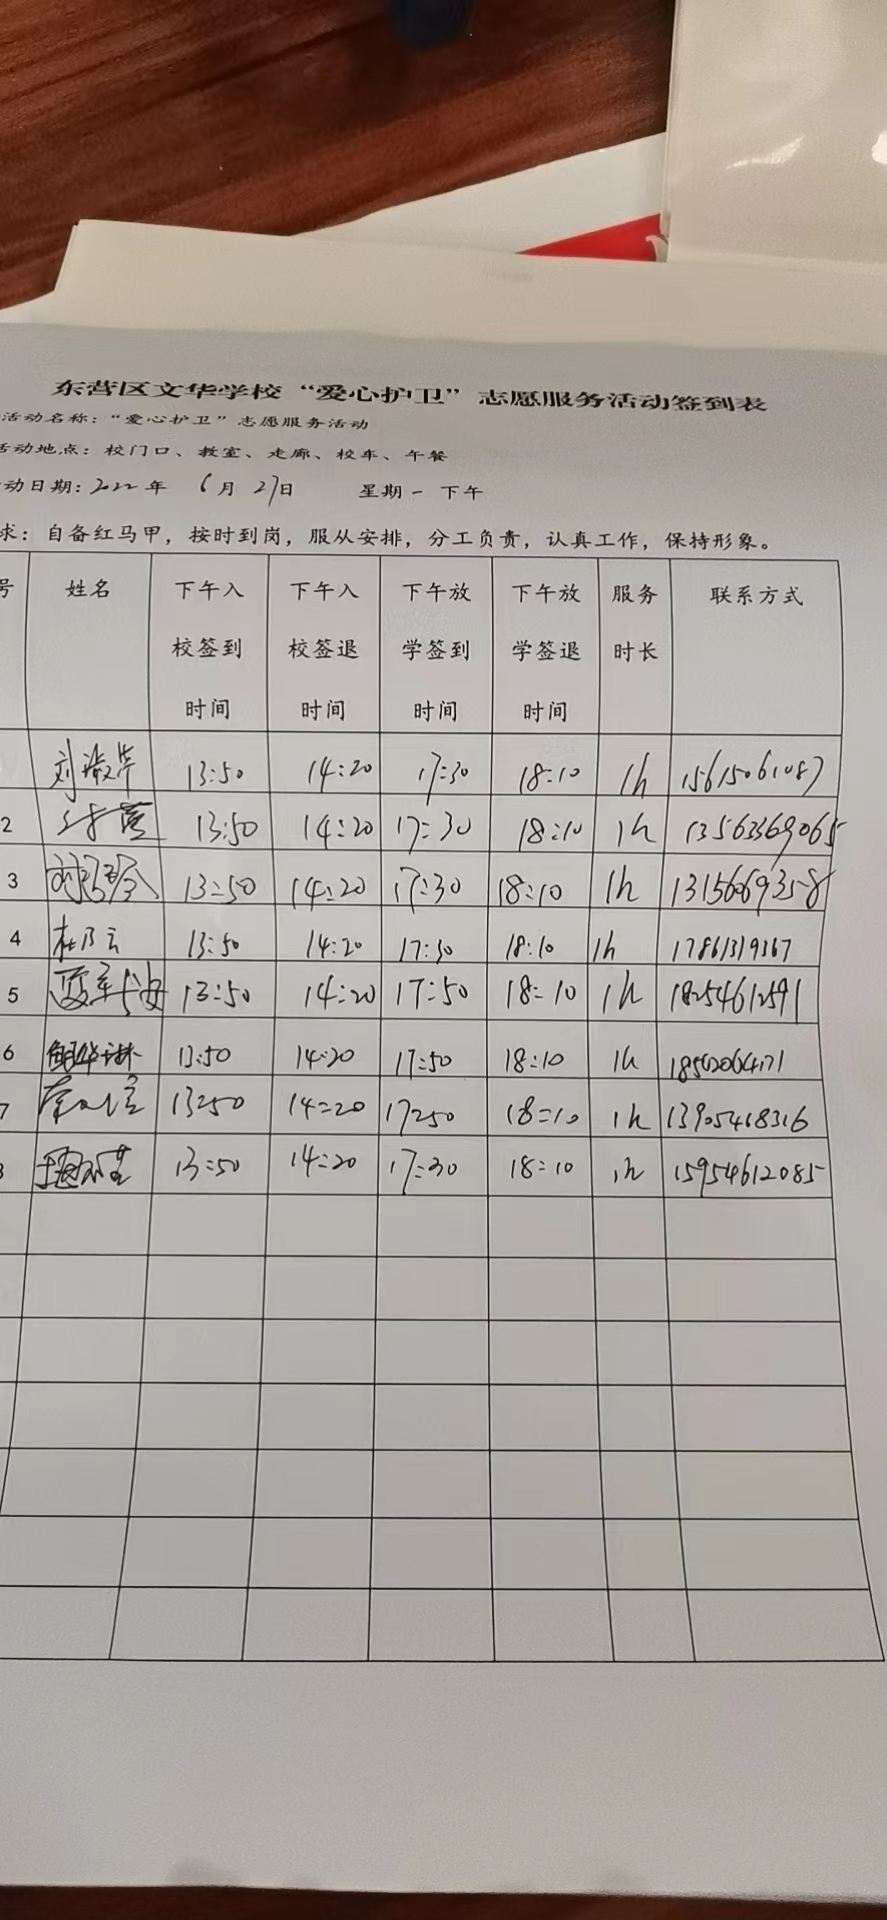 东营区文华学校“爱心护卫”志愿服务活动签到表
活动名称：“爱心护卫”志愿服务活动
活动地点：校门口、教室、走廊、校车、午餐
动日期：2022年 6月 27日 星期一 下午
求：自备红马甲，按时到岗，服从安排，分工负责，认真工作，保持形象。
号 姓名 下午入校签到时间 下午入校签退时间 下午放学签到时间 下午放学签退时间 服务时长 联系方式
刘淑华 13:50 14:20 17:30 18:10 1h 15615061087
2 13:50 14:20 17:30 18:10 1h 13563369065
3 13:50 14:20 17:30 18:10 1h 13156069358
4 杜乃云 13:50 14:20 17:30 18:10 1h 17861319367
5 13:50 14:20 17:50 18:10 1h 18254612591
6 13:50 14:20 17:50 18:10 1h
7 13:50 14:20 17:50 18:10 1h 13905468316
13:50 14:20 17:30 18:10 1h 15954612085